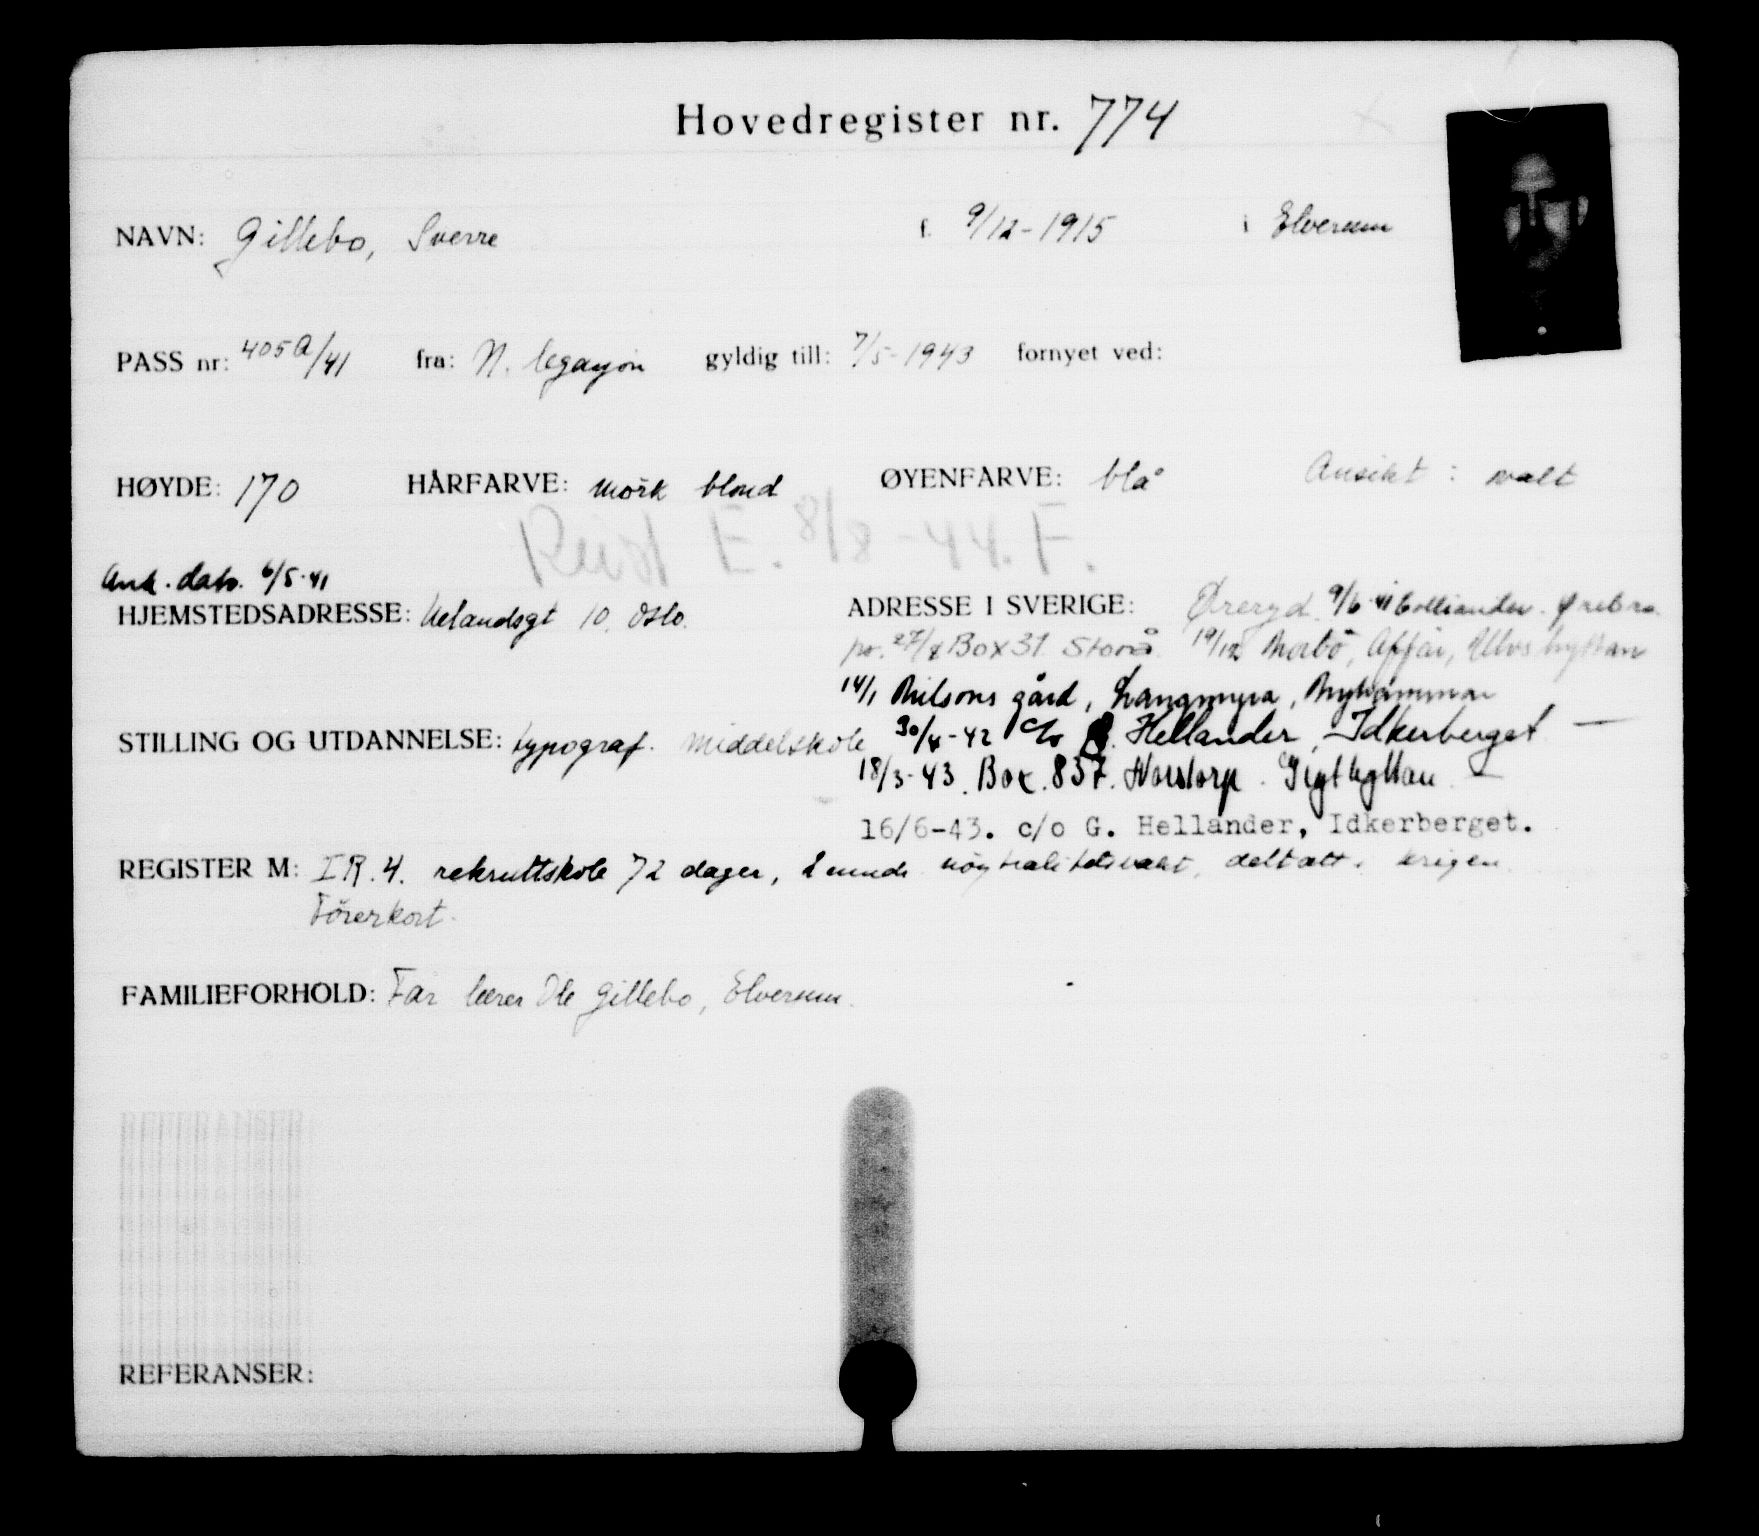 Hovedregister nr. 774
NAVN: Gillebo, Sverre f. 9/12-1915 i Elverum
PASS nr: 405a/41 fra: N. legasjon gyldig till: 7/5-1943 fornyet ved:
HØYDE: 170 HÅRFARVE: mörk blond ØYENFARVE: blå Ansikt: ovalt
Reist E. 8/8-44. F.
Ank. dato. 6/5-41
HJEMSTEDSADRESSE: Uelandsgt 10. Oslo. ADRESSE I SVERIGE: Øreryd 9/6-41 Ørebro.
27/8 Box 31. Storå. 19/12 Morbö, Affär, Ulvshyttan
14/1 Nilsons gård, Langmyra, Nyhammar
STILLING OG UTDANNELSE: typograf. middelskole 30/4-42 c/o G. Hellander, Idkerberget —
18/3-43. Box 857.
16/6-43. c/o G. Hellander, Idkerberget.
REGISTER M: I.R.4. rekruttskole 72 dager, 2 mnds nöytralitetsvakt, deltatt i krigen.
Förerkort.
FAMILIEFORHOLD: Far lærer Ole Gillebo, Elverum.
REFERANSER: